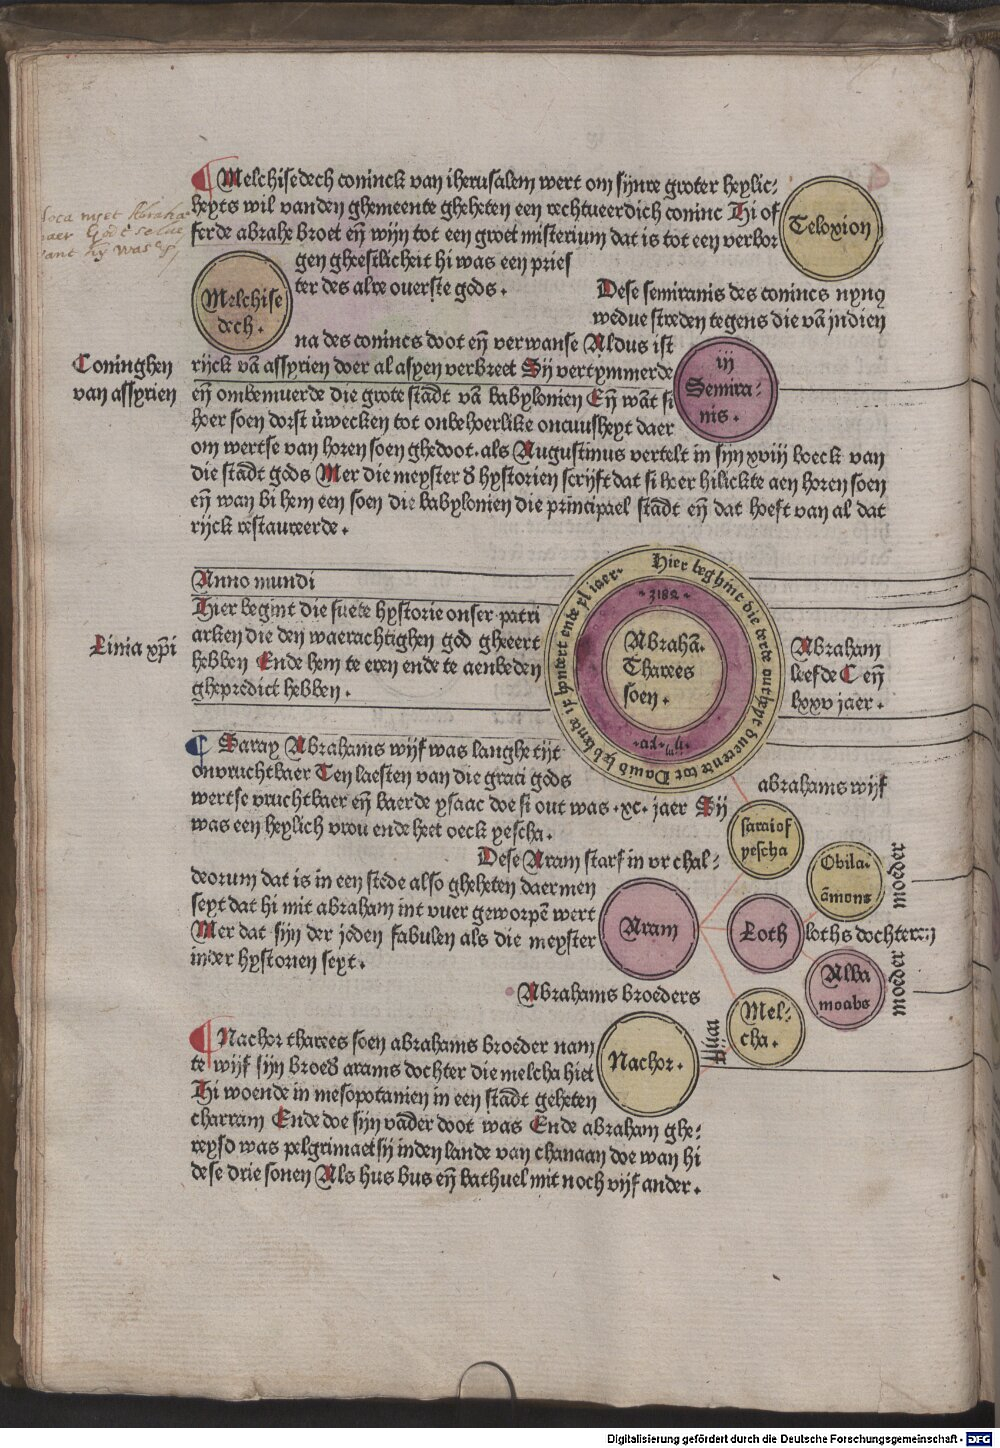 Melchisedech coninck van iherusalem wert om sijnre groter heylic-
heyts wil vanden ghemeente gheheten een rechtueerdich coninc Hi of
ferde abrahē broet eñ wijn tot een groet misterium dat is tot een verbor
gen gheestlicheit hi was een pries
ter des alre ouerste gods.
Teloxion
Melchise
dech.
Dese semiramis des conincs nynꝯ
wedue streden tegens die vā jndien
na des conincs doot eñ verwanse Aldus ist
Coninghen
van assyrien
rijck vā assyrien ouer al asyen verbreet Sij vertymmerde
eñ ombemuerde die grote stādt vā babylonien Eñ wāt si
hoer soen dorst ůwecken tot onbehoerlike oncuusheyt daer
iij
Semira-
nis.
om wertse van horen soen ghedoot. als Augustinus vertelt in sijn xviij boeck van
die stādt gods Mer die meyster ð hystorien scrijft dat si hoer hilickte aen horen soen
eñ wan bi hem een soen die babylonien die principael stādt eñ dat hoeft van al dat
rijck restaureerde.
Anno mundi
Linia xp̄i
Hier begint die suete hystorie onser patri
arken die den waerachtighen god gheeert
hebben Ende hem te eren ende te aenbeden
ghepredict hebben.
Hier beghint die derde outheyt duerende tot Dauid
hondert ende xl iaer.
3182
Abrahā.
Tharees
soen.
Abraham
leefde C eñ
lxxv jaer.
Saray Abrahams wijf was langhe tijt
onvruchtbaer Ten laesten van die graci gods
wertse vruchtbaer eñ baerde ysaac doe si out was .xc. jaer Sij
was een heylich vrou ende heet oeck yescha.
abrahams wijf
sarai of
yescha
Dese Aram starf in vr chal-
deorum dat is in een stede also gheheten daermen
seyt dat hi mit abraham int vuer geworpē wert
Mer dat sijn der jöden fabulen als die meyster
inder hystorien seyt.
Aram
Loth
Obila.
āmons
moeder
loths dochteren
Alba
moabs
moeder
Abrahams broeders
Nachor tharees soen abrahams broeder nam
te wijf sijn broeð arams dochter die melcha hiet
Hi woende in mesopotanien in een stādt geheten
charram Ende doe sijn vāder doot was Ende abraham ghe-
reysd was pelgrimaetsij inden lande van chanaan doe wan hi
dese drie sonen Als hus bus eñ bathuel mit noch vijf ander.
Nachor.
Mel-
cha.
Digitalisierung gefördert durch die Deutsche Forschungsgemeinschaft - DFG